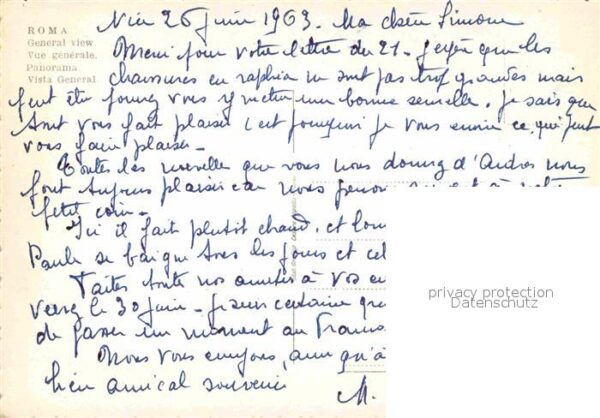 Nice 26 juin 1963. Ma chère Simone
ROMA
General view
Vue générale.
Panorama
Vista General
Merci pour votre lettre du 21 - que les
chaussures en raphia ne sont pas trop grandes mais
peut être pourrez vous y mettre une bonne semelle. Je sais que
tout vous fait plaisir c'est pourquoi je vous envoie ce qui peut
vous faire plaisir -
Toutes les nouvelles que vous nous donnez d'Andres nous
font toujours plaisir car nous
petit coin -
Ici il fait plutôt chaud, et
Paule se baigne tous les jours et
Faites toute nos amitiés à vos
verrez le 30 juin - Je suis certaine
de passer un moment au
Nous vous envoyons, ainsi qu'à
bien amical souvenir
M.
privacy protection
Datenschutz